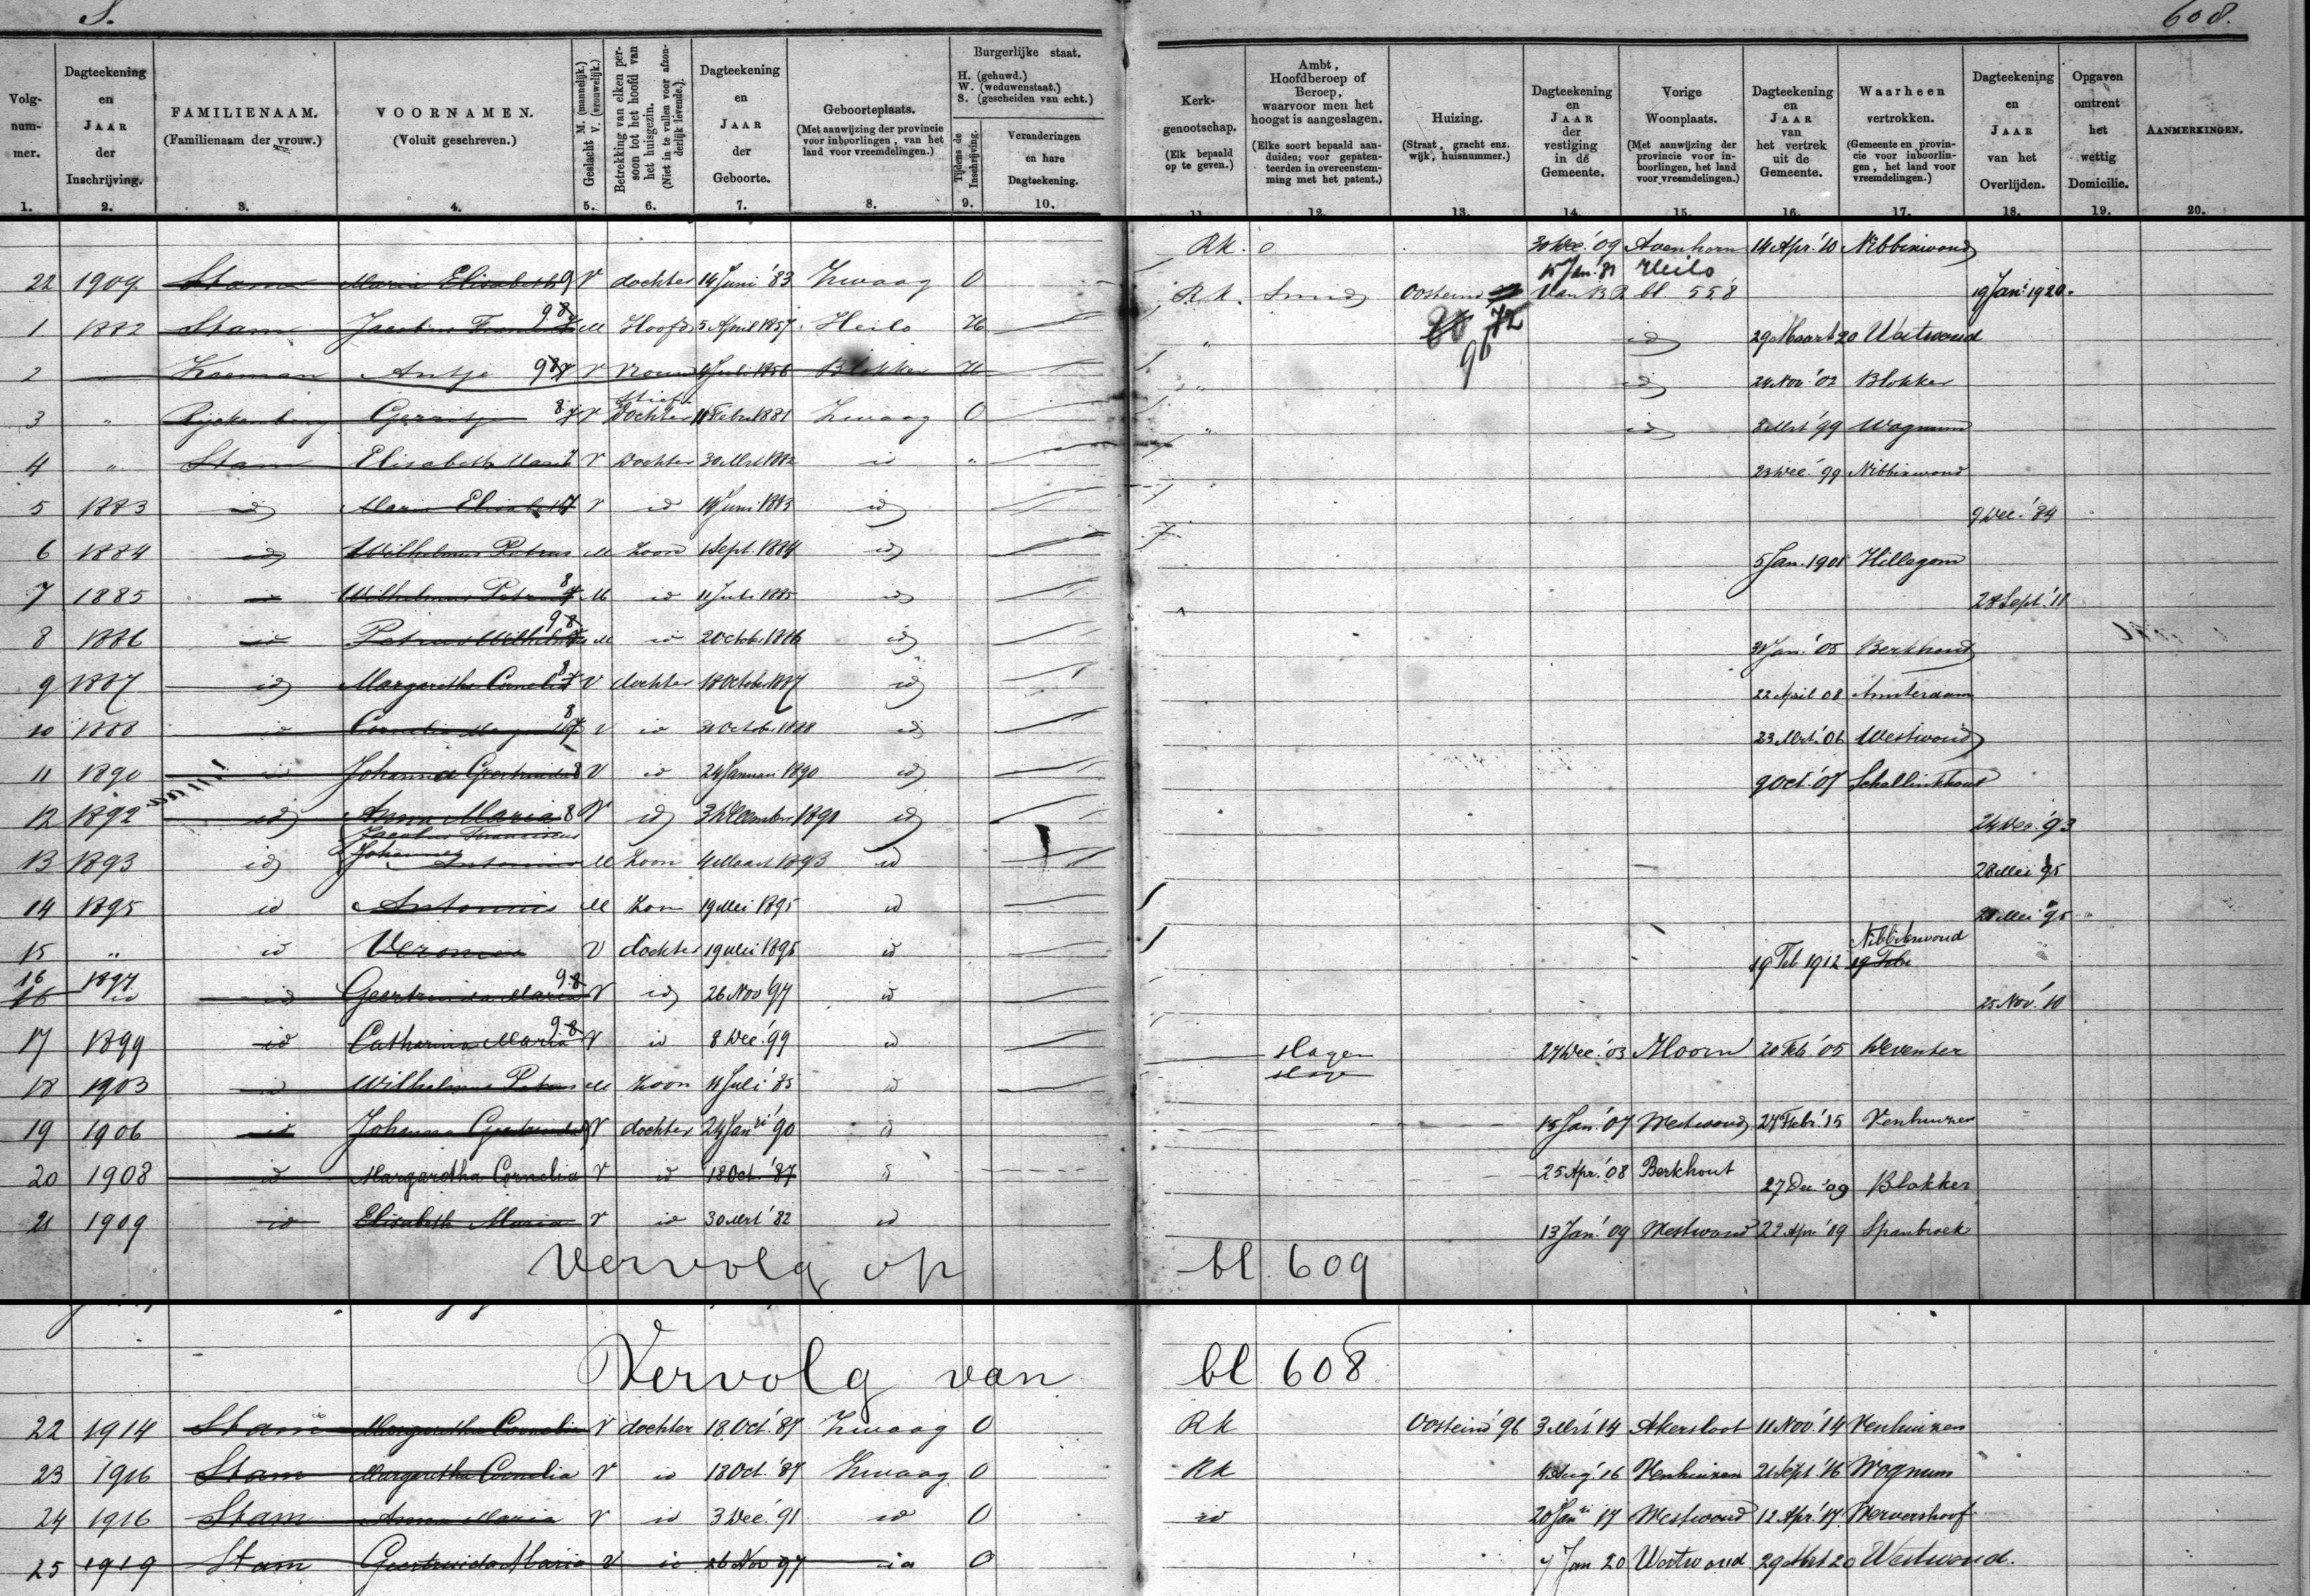 S. 608.
Volgnummer. Dagteekening en JAAR der Inschrijving. FAMILIENAAM. (Familienaam der vrouw.) VOORNAMEN. (Voluit geschreven.) Geslacht M. (mannelijk.) V. (vrouwelijk.) Betrekking van elken persoon tot het hoofd van het huisgezin. (Niet in te vullen voor afzonderlijk levende.) Dagteekening en JAAR der Geboorte. Geboorteplaats. (Met aanwijzing der provincie voor inboorlingen, van het land voor vreemdelingen.) Burgerlijke staat. H. (gehuwd.) W. (weduwenstaat.) S. (gescheiden van echt.) Tijdens de Inschrijving. Veranderingen en hare Dagteekening. Kerkgenootschap. (Elk bepaald op te geven.) Ambt, Hoofdberoep of Beroep, waarvoor men het hoogst is aangeslagen. (Elke soort bepaald aanduiden; voor gepatenteerden in overeenstemming met het patent.) Huizing. (Straat, gracht enz. wijk, huisnummer.) Dagteekening en JAAR der vestiging in de Gemeente. Vorige Woonplaats. (Met aanwijzing der provincie voor inboorlingen, het land voor vreemdelingen.) Dagteekening en JAAR van het vertrek uit de Gemeente. Waarheen vertrokken. (Gemeente en provincie voor inboorlingen, het land voor vreemdelingen.) Dagteekening en JAAR van het Overlijden. Opgaven omtrent het wettig Domicilie. AANMERKINGEN.
1. 2. 3. 4. 5. 6. 7. 8. 9. 10. 11. 12. 13. 14. 15. 16. 17. 18. 19. 20.
22 1909 Stam Maria Elisabeth 9 V dochter 14 Juni '83 Zwaag O Rk. o 30 Dec. '09 Avenhorn 14 Apr. '10 Nibbixwoud
1 1882 Stam Jacobus 98 M Hoofd 5 April 1857 Heilo H R.K. Smid Oosteind 72 96 15 Jan. '81 Heilo Van B.R. bl. 558 19 Jani 1920.
2 Koeman Antje V Vrouw Juli 1856 Blokker H " id 29 Maart 20 Westwoud
3 " Rijckenberg Gerritje V Stief Dochter 11 Febr. 1881 Zwaag O " id 24 Nov. '02 Blokker
4 " Stam Elisabeth Maria V Dochter 30 Mrt 1882 id " " id 8 Mrt '99 Wognum
5 1883 id Maria Elisabeth V id 14 Juni 1883 id 23 Dec. '99 Nibbixwoud
6 1884 id Wilhelmus Petrus M Zoon 1 Sept. 1884 id 9 Dec. '84
7 1885 id Wilhelmus Petrus M id 11 Juli 1885 id 5 Jan. 1901 Hillegom
8 1886 id Petrus Wilhelmus M id 2 Octob. 1886 id 28 Sept. '11
9 1887 id Margaretha Cornelia V dochter 18 Octob. 1887 id Jan. '05 Berkhout
10 1888 id Cornelia V id Octob. 1888 id 22 April 08 Amsterdam
11 1890 id Johanna Geertruida 8 V id 24 Januari 1890 id 23 Mrt. '06 Westwoud
12 1892 id Anna Maria 8 V id 3 December 1890 id 9 Oct. '07 Schellinkhout
13 1893 id Jacobus Franciscus Johannes Antonius M Zoon 4 Maart 1893 id 24 Dec. '93
14 1895 id Antonius M Zoon 19 Mei 1895 id 28 Mei 95
15 " id Veronica V dochter 19 Mei 1895 id 21 Mei '95
16 1897 id Geertruida Maria 98 V id 26 Nov 97 id 19 Feb 1912 Nibbixwoud 19 Feb.
17 1899 id Catharina Maria 98 V id 8 Dec. '99 id 25 Nov. '10
18 1903 id Wilhelmus Petrus M Zoon 11 Juli '85 id slager 27 Dec. '03 Hoorn 20 Feb '05 Deventer
19 1906 id Johanna Geertruida V dochter 24 Jan. '90 id 15 Jan. '07 Westwoud 27 Febr. '15 Venhuizen
20 1908 id Margaretha Cornelia V id 18 Oct. '87 id 25 Apr. '08 Berkhout 27 Dec. '09 Blokker
21 1909 id Elisabeth Maria V id 30 Mrt '82 id 13 Jan. '09 Westwoud 22 Apr. '19 Spanbroek
Vervolg op bl. 609
Vervolg van bl 608
22 1914 Stam Margaretha Cornelia V dochter 18 Oct. '87 Zwaag O Rk Oosteind '96 3 Mrt. '14 Akersloot 11 Nov. '14 Venhuizen
23 1916 Stam Margaretha Cornelia V id 18 Oct. '87 Zwaag O Rk 4 Aug. '16 Venhuizen 21 Sept. '16 Wognum
24 1916 Stam Anna Maria V id 3 Dec. '91 id O id 20 Jan 17 Westwoud 12 Apr. '17 Wervershoof
25 1919 Stam Geertruida Maria V id 26 Nov 97 id O 7 Jan 20 Westwoud 29 Mrt 20 Westwoud.